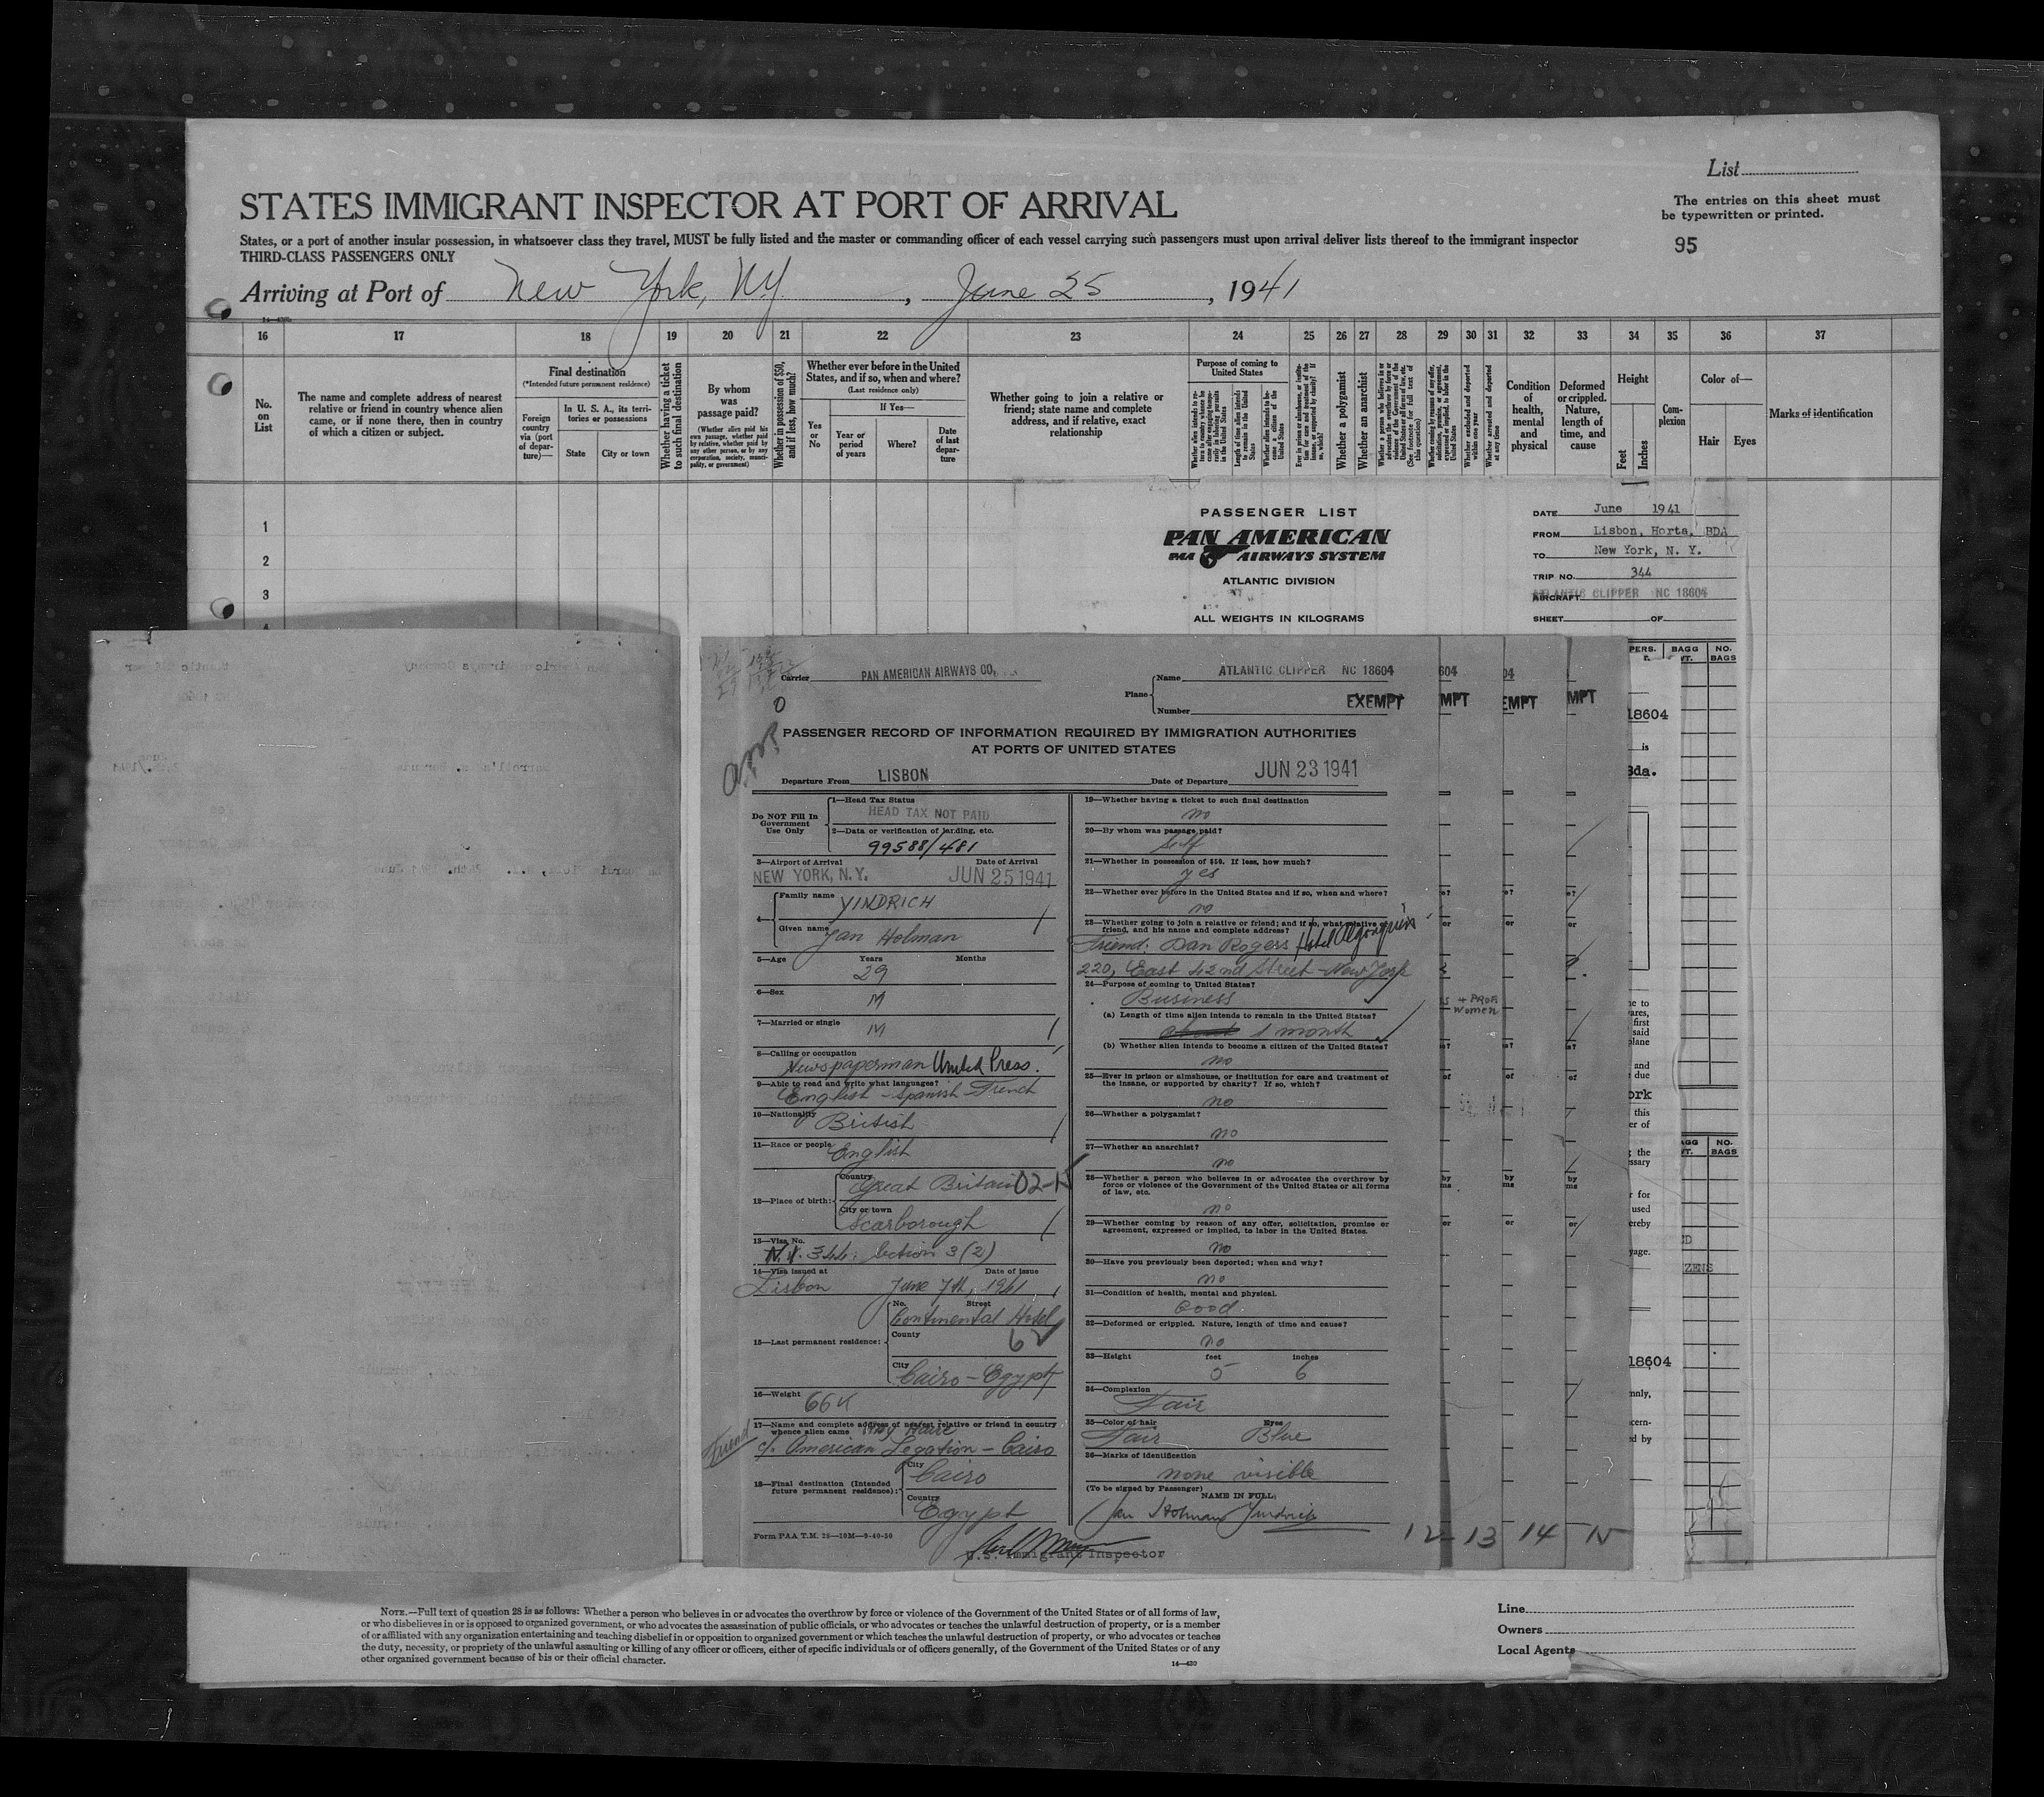 List
STATES IMMIGRANT INSPECTOR AT PORT OF ARRIVAL
The entries on this sheet must
be typewritten or printed.
States, or a port of another insular possession, in whatsoever class they travel, MUST be fully listed and the master or commanding officer of each vessel carrying such passengers must upon arrival deliver lists thereof to the immigrant inspector
THIRD-CLASS PASSENGERS ONLY
95
Arriving at Port of New York, N.Y., June 25, 1941
16 17 18 19 20 21 22 23 24 25 26 27 28 29 30 31 32 33 34 35 36 37
No. on List
The name and complete address of nearest
relative or friend in country whence alien
came, or if none there, then in country
of which a citizen or subject.
Final destination
(*Intended future permanent residence)
Foreign country via (port of departure)—
In U. S. A., its territories or possessions
State
City or town
Whether having a ticket to such final destination
By whom was passage paid?
(Whether alien paid his own passage, whether paid by relative, whether paid by any other person, or by any corporation, society, municipality, or government)
Whether in possession of $50, and if less, how much?
Whether ever before in the United States, and if so, when and where?
(Last residence only)
If Yes—
Yes or No
Year or period of years
Where?
Date of last departure
Whether going to join a relative or
friend; state name and complete
address, and if relative, exact
relationship
Purpose of coming to United States
Whether a polygamist
Whether an anarchist
Condition of health, mental and physical
Deformed or crippled. Nature, length of time, and cause
Height
Feet Inches
Complexion
Color of—
Hair Eyes
Marks of identification
1
2
3
PASSENGER LIST
PAN AMERICAN
PAA AIRWAYS SYSTEM
ATLANTIC DIVISION
ALL WEIGHTS IN KILOGRAMS
DATE June 1941
FROM Lisbon, Horta, BDA
TO New York, N. Y.
TRIP NO. 344
AIRCRAFT ATLANTIC CLIPPER NC 18604
SHEET OF
Carrier PAN AMERICAN AIRWAYS CO.
Plane
Name ATLANTIC CLIPPER NC 18604
Number EXEMPT
PASSENGER RECORD OF INFORMATION REQUIRED BY IMMIGRATION AUTHORITIES
AT PORTS OF UNITED STATES
Departure From LISBON
Date of Departure JUN 23 1941
Do NOT Fill In
Government
Use Only
1—Head Tax Status
HEAD TAX NOT PAID
2—Data or verification of landing, etc.
99588/481
3—Airport of Arrival Date of Arrival
NEW YORK, N.Y. JUN 25 1941
4—
Family name YINDRICH
Given name Jan Holman
5—Age Years Months
29
6—Sex
M
7—Married or single
M
8—Calling or occupation
Newspaperman United Press.
9—Able to read and write what languages?
English - Spanish - French
10—Nationality
British
11—Race or people
English
12—Place of birth:
Country
Great Britain 02-15
City or town
Scarborough
13—Visa No.
N.V. 346: Section 3(2)
14—Visa issued at Date of issue
Lisbon June 7th, 1941
15—Last permanent residence:
No. Street
Continental Hotel
County
62
City
Cairo - Egypt
16—Weight
66 K
17—Name and complete address of nearest relative or friend in country
whence alien came
Friend
c/o American Legation - Cairo
18—Final destination (Intended
future permanent residence):
City
Cairo
Country
Egypt
Form PAA T.M. 28—10M—9-40-50
U.S. Immigrant Inspector
19—Whether having a ticket to such final destination
no
20—By whom was passage paid?
Self
21—Whether in possession of $50. If less, how much?
yes
22—Whether ever before in the United States and if so, when and where?
no
23—Whether going to join a relative or friend; and if so, what relative or
friend, and his name and complete address?
Friend: Dan Rogers Hotel Algonquin
220, East 42nd Street - New York
24—Purpose of coming to United States?
Business
(a) Length of time alien intends to remain in the United States?
1 month
(b) Whether alien intends to become a citizen of the United States?
no
25—Ever in prison or almshouse, or institution for care and treatment of
the insane, or supported by charity? If so, which?
no
26—Whether a polygamist?
no
27—Whether an anarchist?
no
28—Whether a person who believes in or advocates the overthrow by
force or violence of the Government of the United States or all forms
of law, etc.
no
29—Whether coming by reason of any offer, solicitation, promise or
agreement, expressed or implied, to labor in the United States.
no
30—Have you previously been deported; when and why?
no
31—Condition of health, mental and physical.
Good
32—Deformed or crippled. Nature, length of time and cause?
no
33—Height feet inches
5 6
34—Complexion
Fair
35—Color of hair Eyes
Fair Blue
36—Marks of identification
none visible
(To be signed by Passenger)
NAME IN FULL:
Jan Holman Yindrich
12 13 14 15
NOTE.—Full text of question 28 is as follows: Whether a person who believes in or advocates the overthrow by force or violence of the Government of the United States or of all forms of law,
or who disbelieves in or is opposed to organized government, or who advocates the assassination of public officials, or who advocates or teaches the unlawful destruction of property, or is a member
of or affiliated with any organization entertaining and teaching disbelief in or opposition to organized government or which teaches the unlawful destruction of property, or who advocates or teaches
the duty, necessity, or propriety of the unlawful assaulting or killing of any officer or officers, either of specific individuals or of officers generally, of the Government of the United States or of any
other organized government because of his or their official character.
14—430
Line
Owners
Local Agents